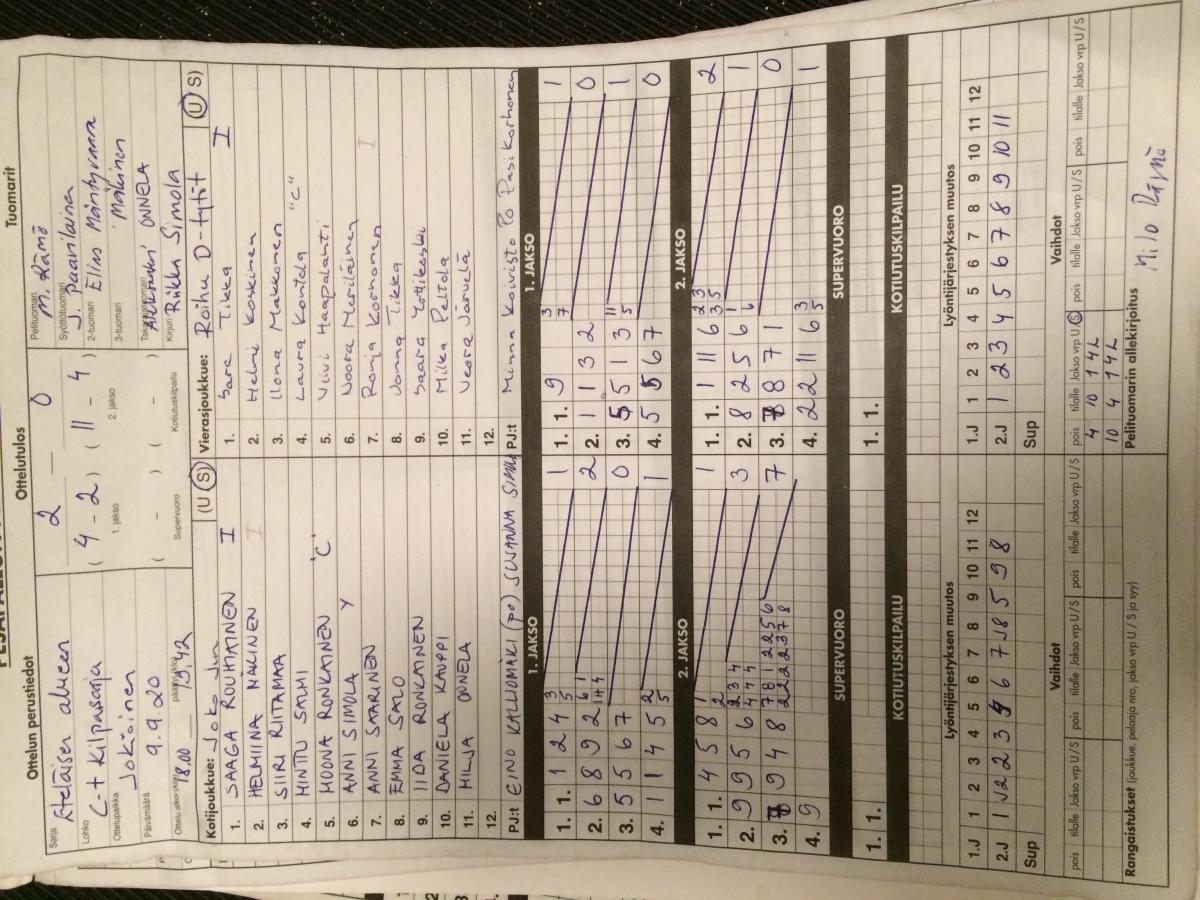 Ottelun perustiedot
Sarja
Eteläisen alueen
Lohko
C-t kilpasarja
Ottelupaikka
Jokioinen
Päivämäärä
9.9.20
18.00
19,42
Ottelutulos
2 — 0
( 4 - 2 ) ( 11 - 4 )
1. jakso 2. jakso
( - ) ( - )
Supervuoro Kotiutuskilpailu
Tuomarit
Pelituomari
M. Rämö
Syöttötuomari
J. Paavilainen
2-tuomari
Elias Mäntyvaara
3-tuomari
Mäkinen
ONNELA
Kirjuri
Riikka Simola
Kotijoukkue: Joko Jun (U S)
1. SAAGA ROUHIAINEN I
2. HELMIINA NÄKINEN
3. SIIRI RIITAMAA
4. MINTTU SALMI
5. MOONA RONKAINEN "C"
6. ANNI SIMOLA Y
7. ANNI SAARINEN
8. EMMA SALO
9. IIDA RONKAINEN
10. DANIELA KAIPPI
11. MILJA ONNELA
12.
PJ:t EINO KALLIOMÄKI (po) SUSANNA
Vierasjoukkue: Roihu D-tytöt (U S)
1. Sara Tikka I
2. Helmi Koskinen
3. Ilona Makkonen
4. Laura Kontola "C"
5. Viivi Haapalahti
6. Noora Meriläinen
7. Ronja Korhonen I
8. Jonna Tikka
9. Saara
10. Milka Peltola
11. Veera Järvelä
12.
PJ:t Minna Koivisto Po Pasi Korhonen
1. JAKSO
1. 1. 1 2 4 3 5 1
2. 6 8 9 2 2
3. 5 5 6 7 0
4. 1 1 4 5 2 5 1
1. JAKSO
1. 1. 9 3 7 1
2. 1 1 3 2 0
3. 5 5 1 3 11 5 1
4. 5 5 6 7 0
2. JAKSO
1. 1. 4 5 8 1 2 1
2. 9 9 5 6 3
3. 9 4 8 7
4. 9
2. JAKSO
1. 1. 1 11 6 2 3 3 5 2
2. 8 2 5 6 1 6 1
3. 8 8 7 1 0
4. 2 2 11 6 3 5 1
SUPERVUORO
1. 1.
SUPERVUORO
1. 1.
KOTIUTUSKILPAILU
KOTIUTUSKILPAILU
Lyöntijärjestyksen muutos
1.J 1 2 3 4 5 6 7 8 9 10 11 12
2.J
Sup
Lyöntijärjestyksen muutos
1.J 1 2 3 4 5 6 7 8 9 10 11 12
2.J 1 2 3 4 5 6 7 8 9 10 11
Sup
Vaihdot
pois tilalle Jakso vrp U/S pois tilalle Jakso vrp U/S pois tilalle Jakso vrp U/S
Vaihdot
pois tilalle Jakso vrp U/S pois tilalle Jakso vrp U/S pois tilalle Jakso vrp U/S
4 10 1 4L
10 4 1 4L
Rangaistukset (joukkue, pelaaja nro, jakso vrp U/S ja syy)
Pelituomarin allekirjoitus
Milo Rämö